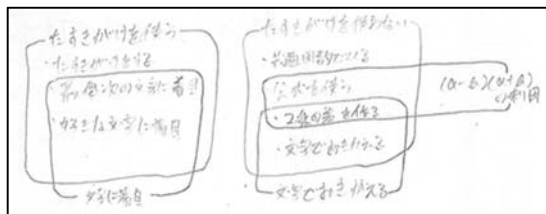 たすきがけを使う
・たすきがけをする
・最低次の文字に着目
・好きな文字に着目
文字に着目
たすきがけを使わない
・共通因数でくくる
公式を使う
・2乗の差を作る
・文字でおきかえる
文字でおきかえる
(a-b)(a+b)
の利用